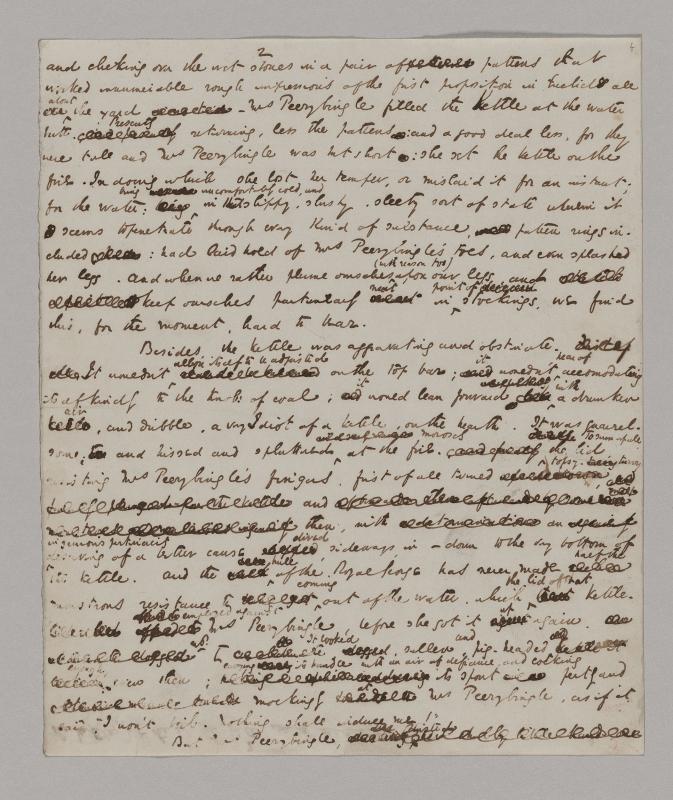 2
and clicking over the wet stones in a pair of pattens that
worked innumerable rough impressions of the first proposition in Euclid all
about the yard - Mrs Peerybingle filled the kettle at the water
butt. Presently returning, less the pattens: and a good deal less, for they
were tall and Mrs Peerybingle was but short: she set the kettle on the
fire. In doing which she lost her temper, or mislaid it for an instant;
for the water; being uncomfortably cold, and in that slippy, slushy, sleety sort of state wherein it
seems to penetrate through every kind of substance, patten rings in-
cluded: had laid hold of Mrs Peerybingle's toes, and even splashed
her legs. And when we rather plume ourselves (with reason too) upon our legs, and
keep ourselves particularly neat in point of stockings, we find
this, for the moment, hard to bear.
Besides, the kettle was aggravating and obstinate.
It wouldn't allow itself to be adjusted on the top bar; it wouldn't hear of accomodating
itself kindly to the knobs of coal; it would lean forward with a drunken
air, and dribble, a very Idiot of a kettle, on the hearth. It was quarrel-
some; and hissed and spluttered morosely at the fire. To sum up all the lid
resisting Mrs Peerybingle's fingers, first of all turned topsy-turvey
and then, with an ingenious pertinacity
deserving of a better cause dived sideways in - down to the very bottom of
the kettle. And the hull of the Royal George has never made half the
monstrous resistance to coming out of the water, which the lid of that kettle
employed against Mrs Peerybingle, before she got it up again.
It looked sullen and pig-headed
even then; its handle with an air of defiance, and cocking its spout pertly and
mockingly at Mrs Peerybingle, as if it
said "I won't boil. Nothing shall induce me!"
But Mrs Peerybingle,